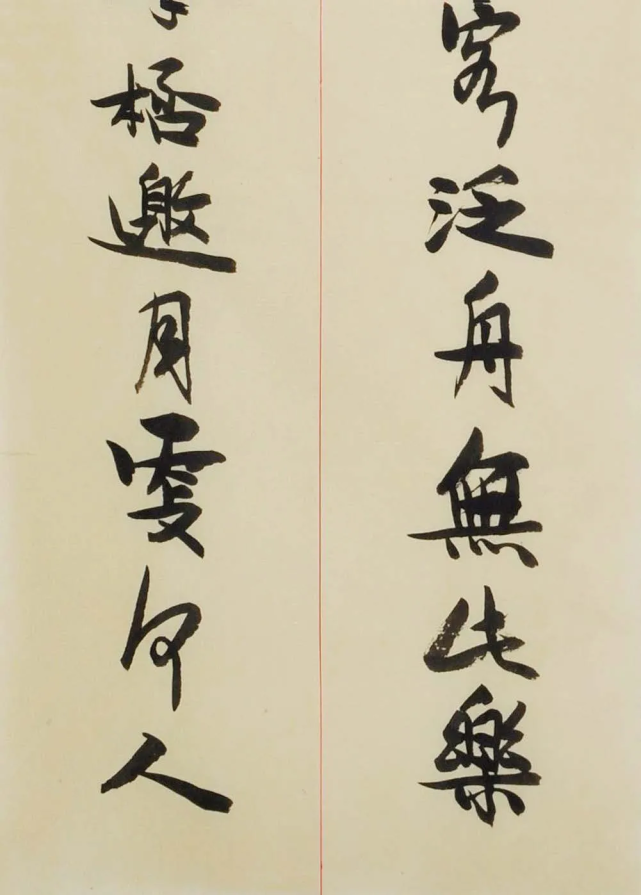 客泛舟無此樂
桮邀月更何人